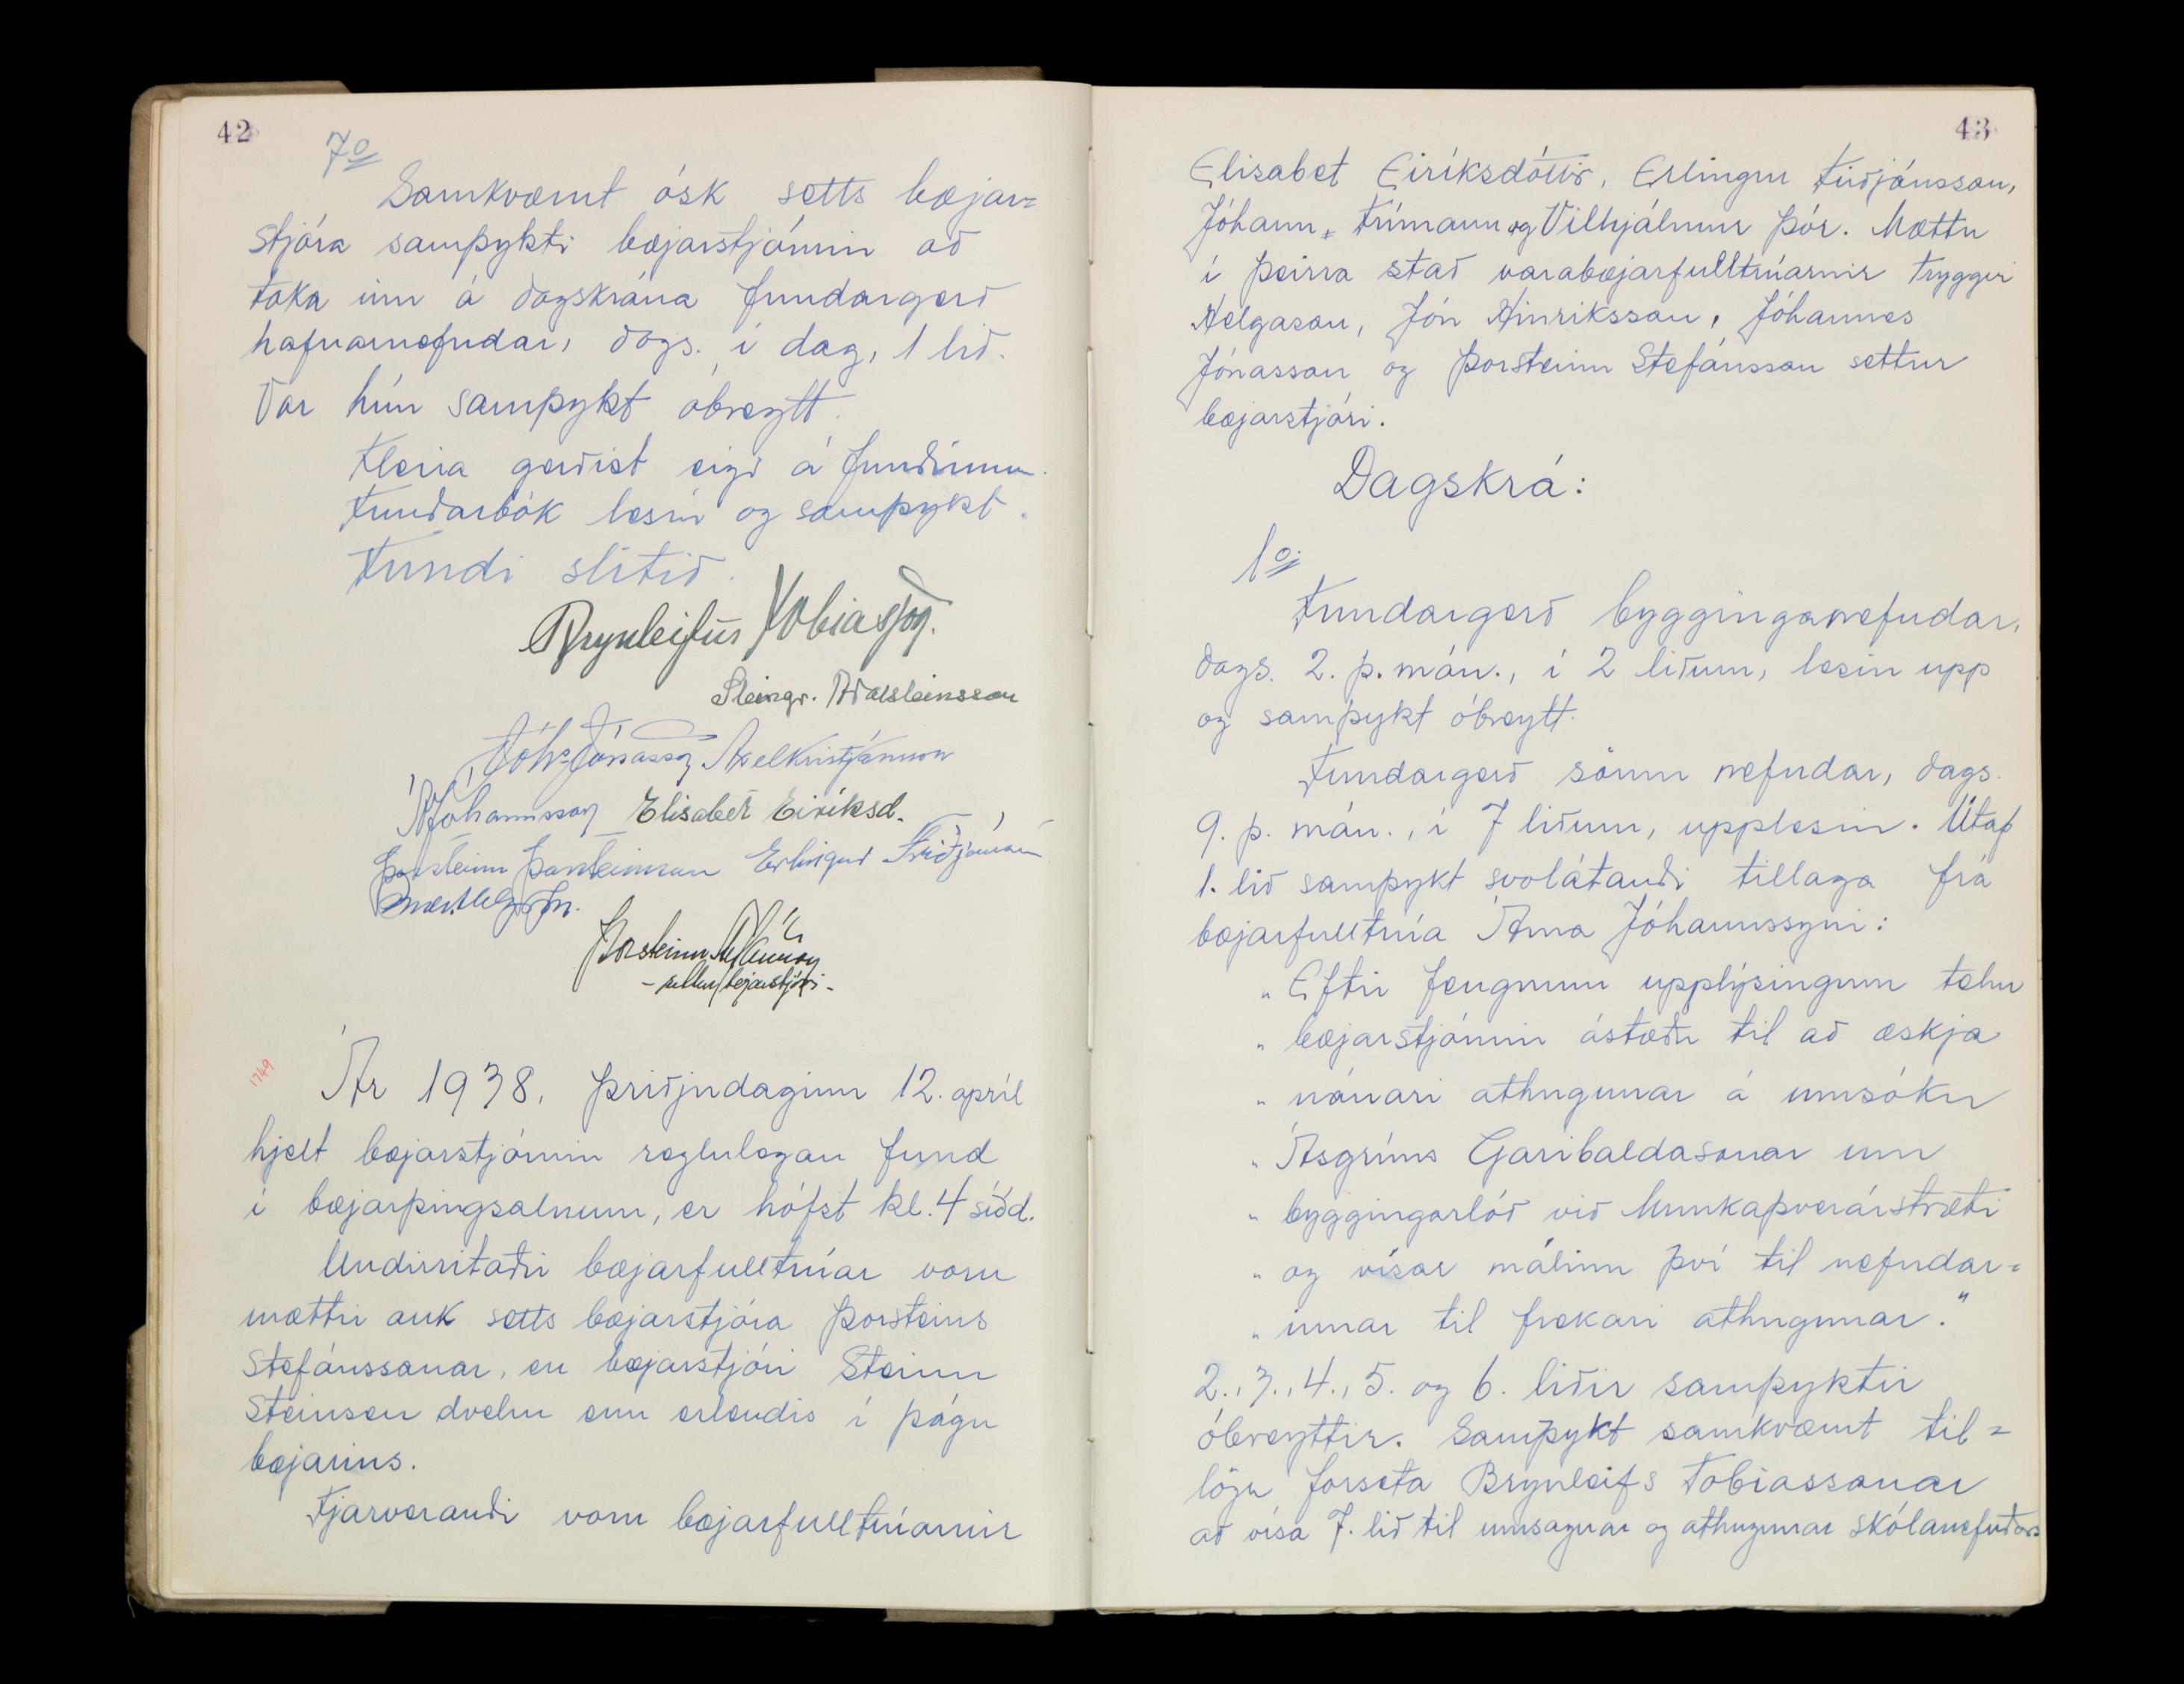 42
7º
Samkvæmt ósk setts bæjar=
stjóra samþykti bæjarstjórnin að
taka inn á dagskrána fundargerð
hafnarnefndar, dags. í dag, 1 lið.
Var hún samþykt óbreytt.
Fleira gerðist eigi á fundinum.
Fundarbók lesin og samþykt.
Fundi slitið.
Brynleifur Tobiasson.
Steingr. Aðalsteinsson
Jóhs Jónasson Axel Kristjánsson
Á Jóhannsson Elisabet Eiríksd.
Þorsteinn Þorsteinsson Erlingur Friðjónsson
Þorsteinn Stefánsson
- settur bæjarstjóri -
1749
Ár 1938, þriðjudaginn 12. apríl
hjelt bæjarstjórnin reglulegan fund
í bæjarþingsalnum, er hófst kl. 4 síðd.
Undirritaðir bæjarfulltrúar voru
mættir auk setts bæjarstjóra Þorsteins
Stefánssonar, en bæjarstjóri Steinn
Steinsen dvelur enn erlendis í þágu
bæjarins.
Fjarverandi voru bæjarfulltrúarnir
43
Elisabet Eiríksdóttir, Erlingur Friðjónsson,
Jóhann Frímann og Vilhjálmur Þór. Mættu
í þeirra stað varabæjarfulltrúarnir Tryggvi
Helgason, Jón Hinriksson, Jóhannes
Jónasson og Þorsteinn Stefánsson settur
bæjarstjóri.
Dagskrá:
1º
Fundargerð bygginganefndar,
dags. 2. þ. mán., í 2 liðum, lesin upp
og samþykt óbreytt.
Fundargerð sömu nefndar, dags.
9. þ. mán., í 7 liðum, upplesin. Útaf
1. lið samþykt svolátandi tillaga frá
bæjarfulltrúa Árna Jóhannssyni:
„ Eftir fengnum upplýsingum telur
„ bæjarstjórnin ástæðu til að æskja
„ nánari athugunar á umsókn
„ Ásgríms Garibaldasonar um
„ byggingarlóð við Munkaþverárstræti
„ og vísar málinu því til nefndar=
„ innar til frekari athugunar."
2., 3., 4., 5. og 6. liðir samþyktir
óbreyttir. Samþykt samkvæmt til=
lögu forseta Brynleifs Tobiassonar
að vísa 7. lið til umsagnar og athugunar skólanefndar